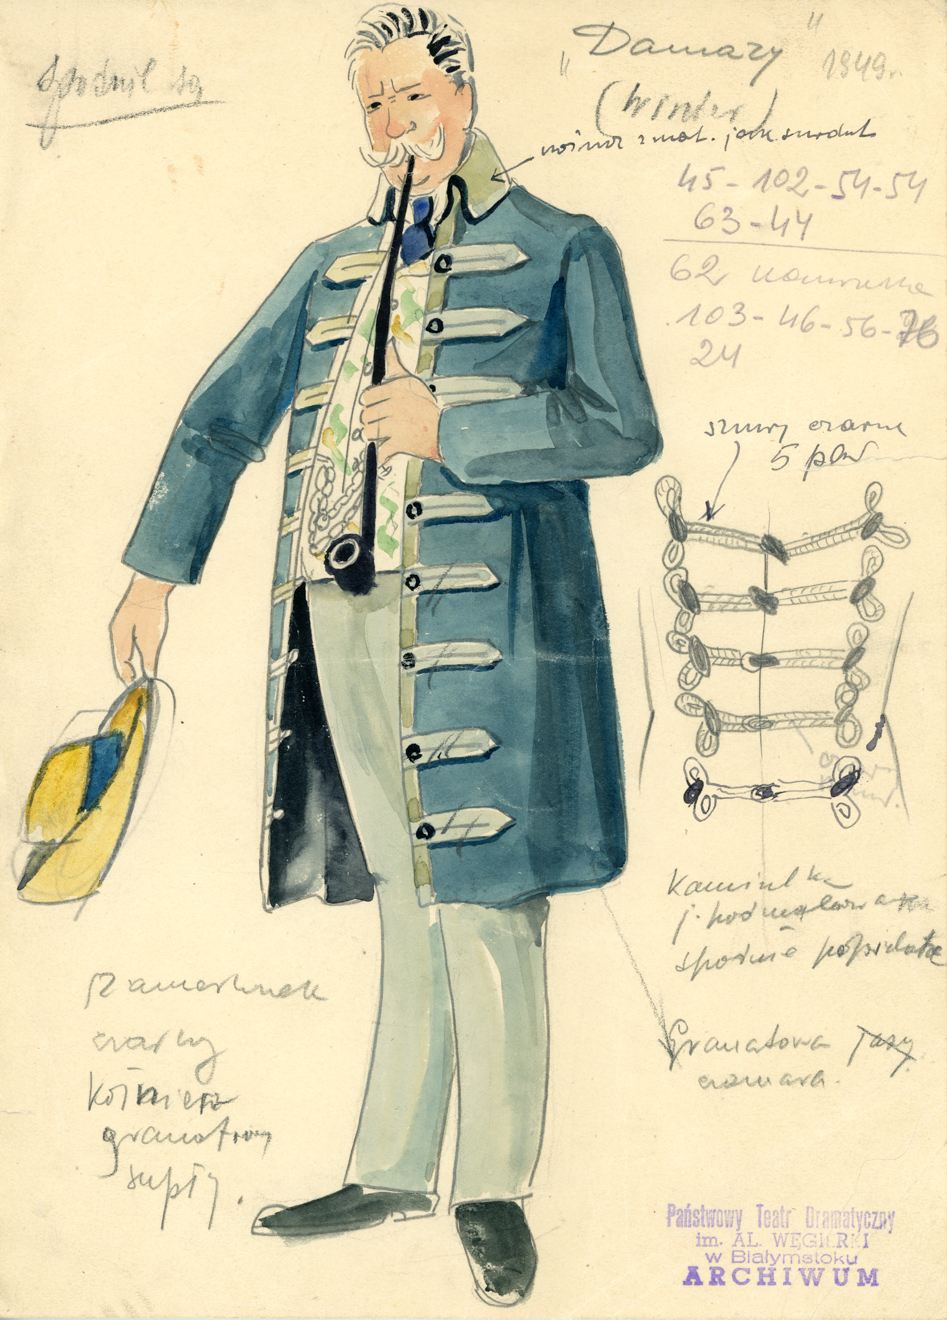 "Damazy" 1849r.
Spodnie są
(Winter)
kołnierz z mat. jak surdut
45-102-54-54
63-44
62 kamizelka
103-46-56-76
24
sznury czarne
5 par
Kamizelka
j. podmalowana
spodnie popielate
Granatowa
czamara.
czarny
kołnierz
granatowy
supły.
Państwowy Teatr Dramatyczny
im. AL. WĘGIERKI
w Białymstoku
ARCHIWUM